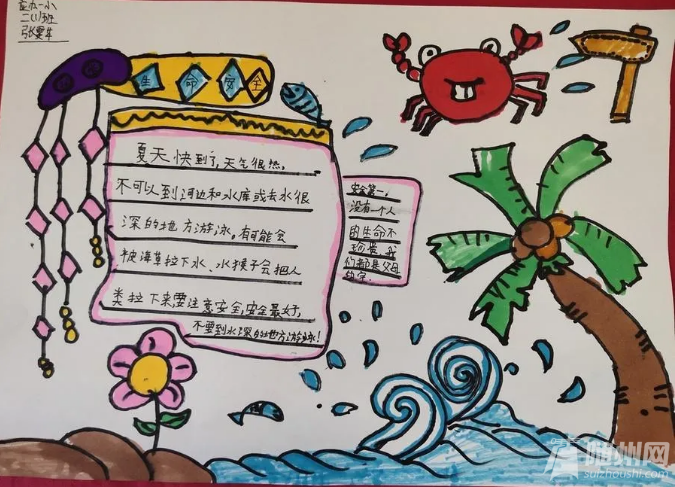 二(1)班
生命安全
夏天快到了,天气很热,
不可以到河边和水库或去水很
深的地方游泳,有可能会
被海草拉下水、水猴子会把人
类拉下来,要注意安全,安全最好,
不要到水深的地方游泳!
安全第一,
没有一个人
的生命不
珍贵,我
们都是父母
的宝
随州网
suizhoushi.com